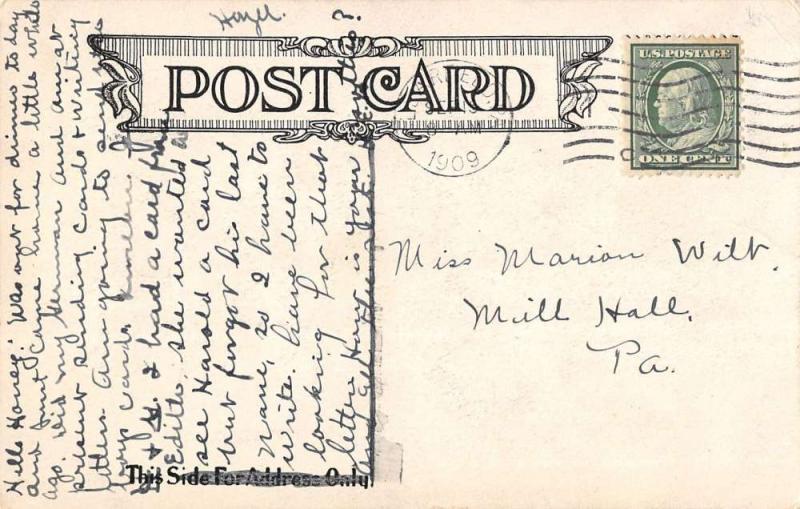 Hazel.
POST CARD
1909
AM
U.S. POSTAGE
ONE CENT
Hello Honey: Was out for dinner to day
and just came home a little while
ago. Did my German and am at
present sending cards & writing
letters. Am going to send
boys cards
& H. I had a card from
Edith, she wanted a
see Harold a card
but forgot his last
Name, so I have to
write. Have been
looking for that
letter. How is your
Miss Marion Wilt.
Mill Hall.
Pa.
This Side For Address Only.